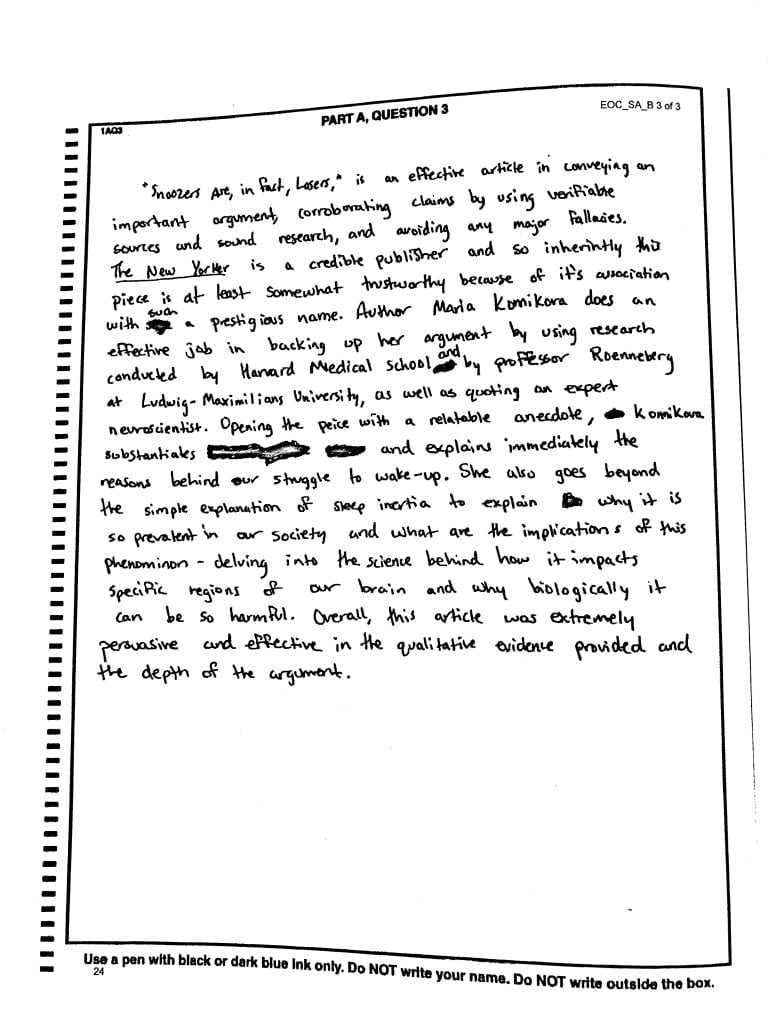 EOC_SA_B 3 of 3
PART A, QUESTION 3
1AQ3
"Snoozers Are, in fact, Losers," is an effective article in conveying an
important argument, corroborating claims by using verifiable
sources and sound research, and avoiding any major fallacies.
The New Yorker is a credible publisher and so inherintly this
piece is at least somewhat trustworthy because of it's association
with such a prestigious name. Author Maria Konikova does an
effective job in backing up her argument by using research
conducted by Harvard Medical School and by professor Roenneberg
at Ludwig-Maximilians University, as well as quoting an expert
neuroscientist. Opening the peice with a relatable anecdote, Konikova
substantiates and explains immediately the
reasons behind our struggle to wake-up. She also goes beyond
the simple explanation of sleep inertia to explain why it is
so prevalent in our society and what are the implications of this
phenominon - delving into the science behind how it impacts
specific regions of our brain and why biologically it
can be so harmful. Overall, this article was extremely
persuasive and effective in the qualitative evidence provided and
the depth of the argument.
Use a pen with black or dark blue ink only. Do NOT write your name. Do NOT write outside the box.
24